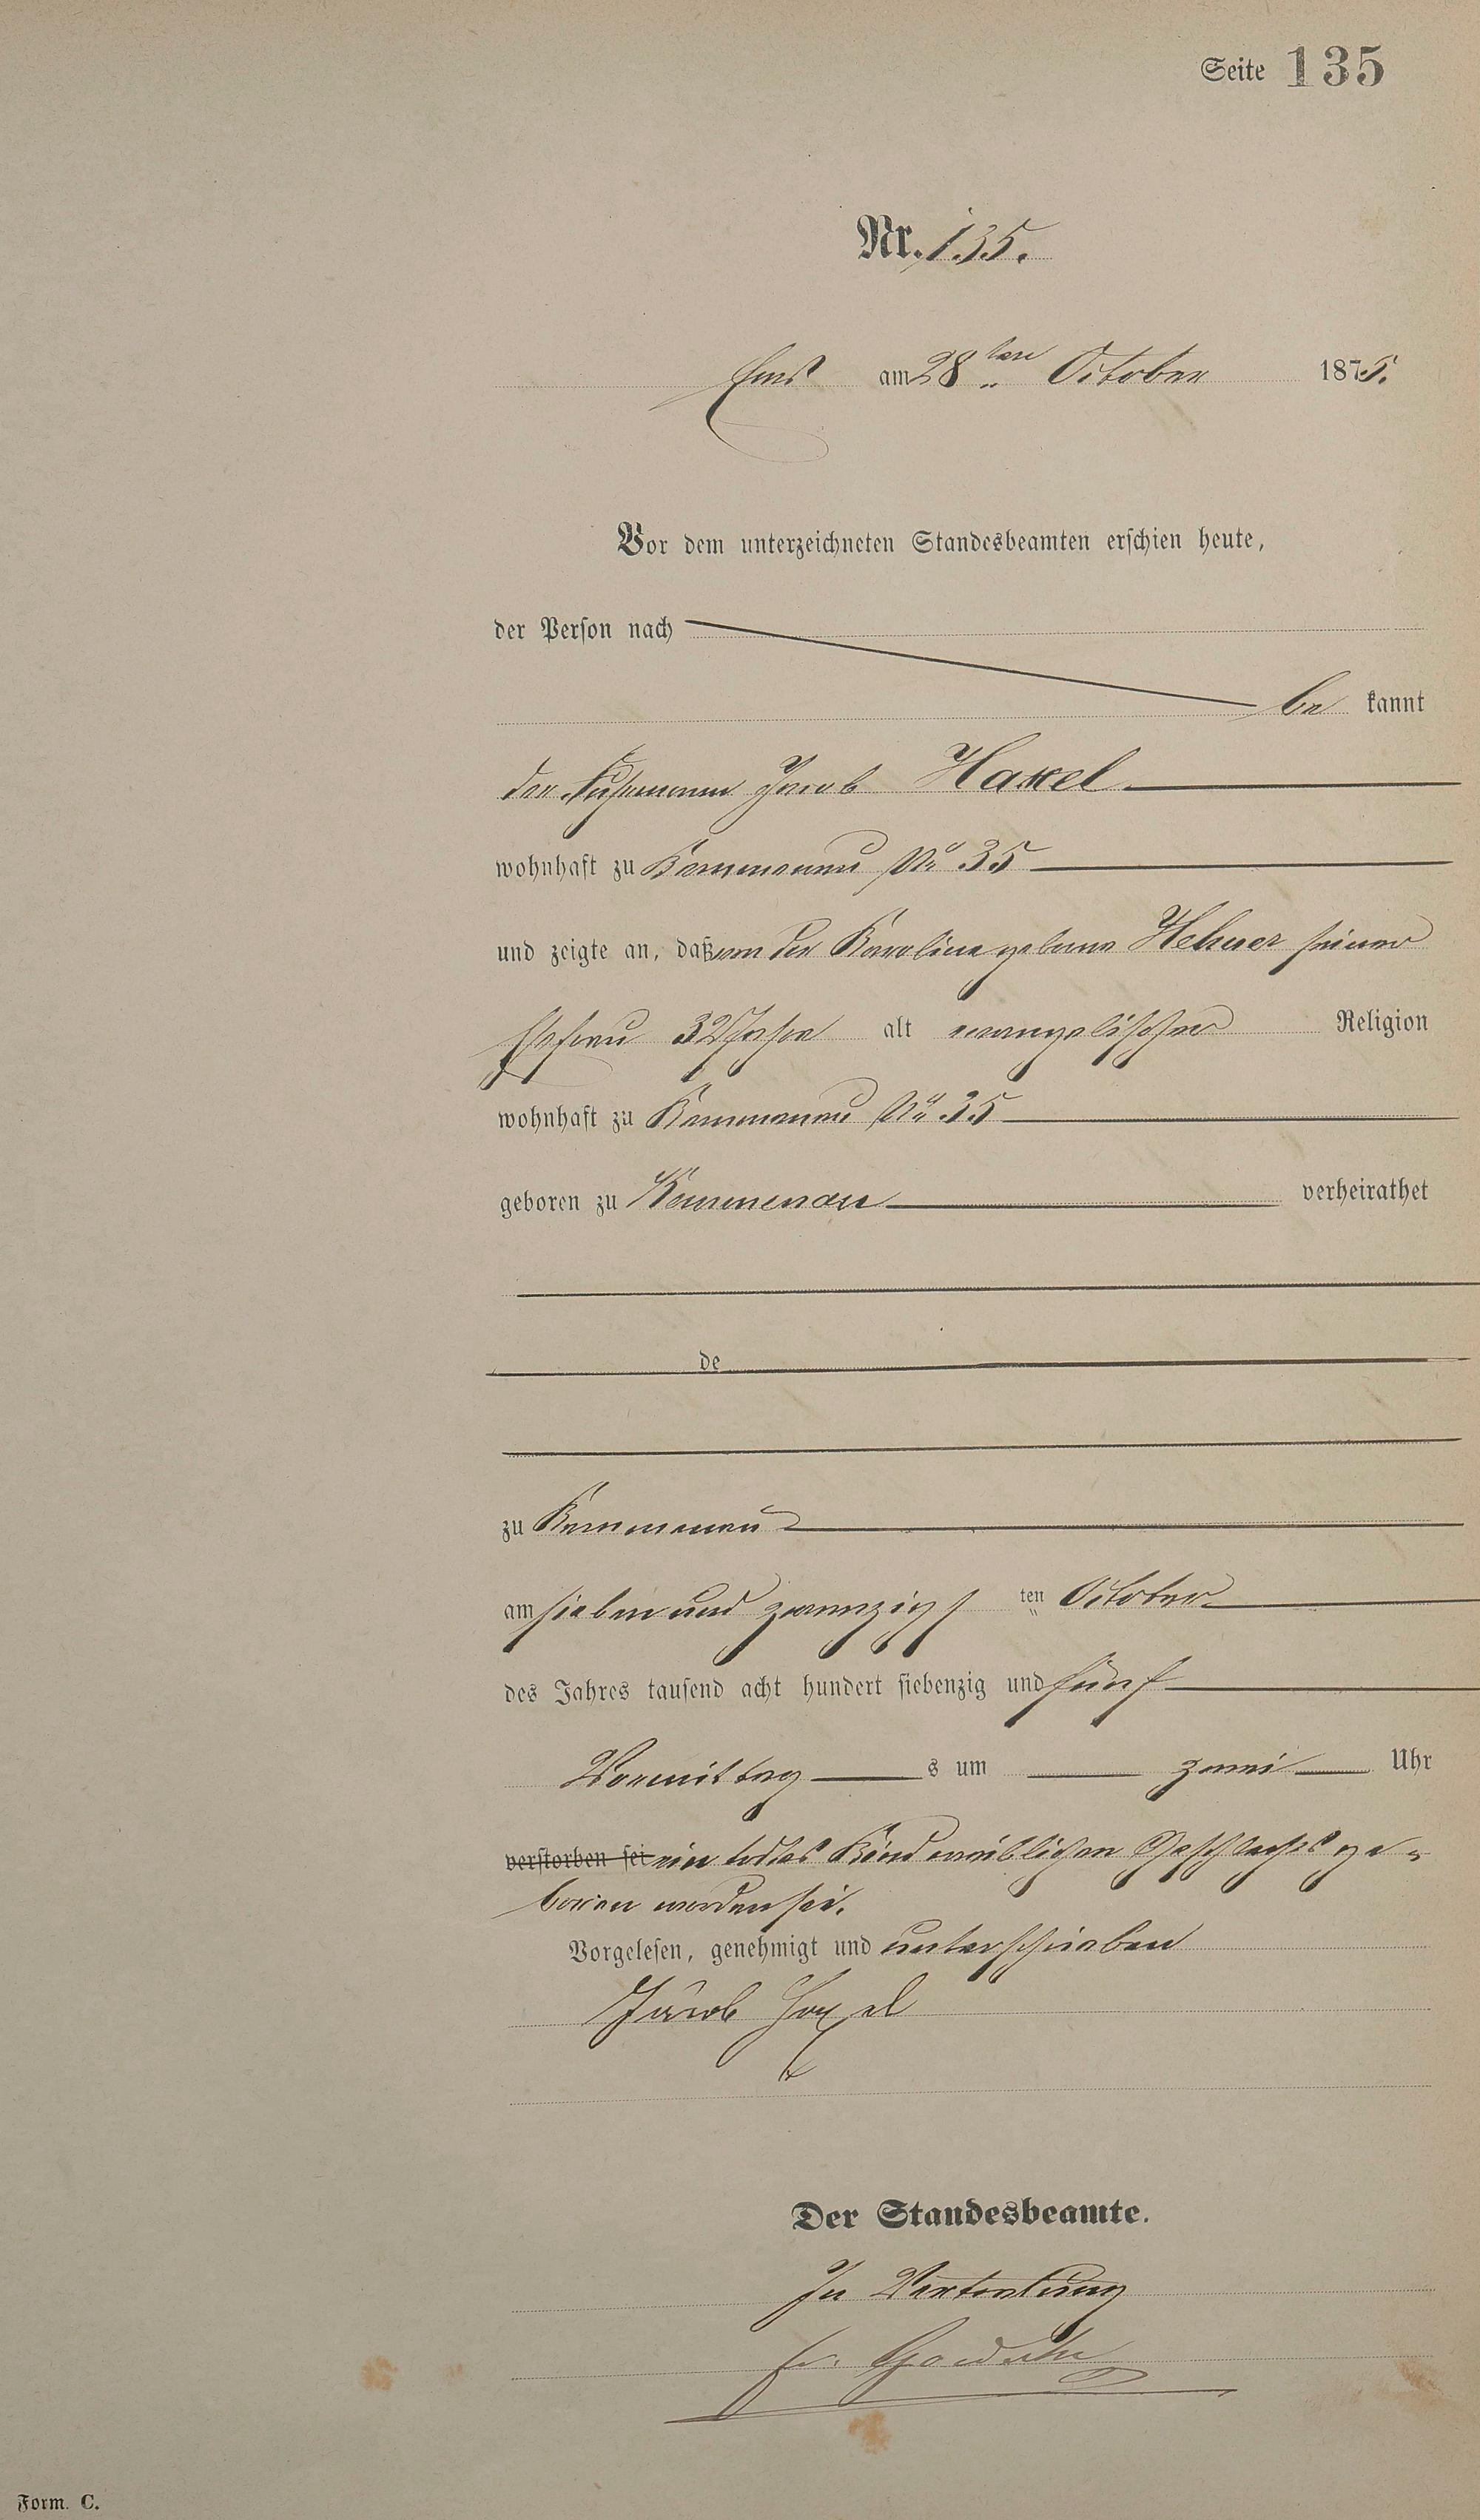 Seite 135
Nr. 135.
Ems am 28ten October 1875.
Vor dem unterzeichneten Standesbeamten erschien heute,
der Person nach
be kannt
der Fuhrmann Jacob Haxel
wohnhaft zu Kemmenau No 35
und zeigte an, daß von der Karoline geborne Hehner seiner
Ehefrau 32 Jahre alt evangelischer Religion
wohnhaft zu Kemmenau No 35
geboren zu Kemmenau verheirathet
de
zu Kemmenau
am sieben und zwanzigsten October
des Jahres tausend acht hundert siebenzig und fünf
Vormittag s um zwei Uhr
verstorben sei ein todtes Kind weiblichen Geschlechts ge-
boren worden sei.
Vorgelesen, genehmigt und unterschrieben
Jacob Haxel
Der Standesbeamte.
In Vertretung
Form. C.